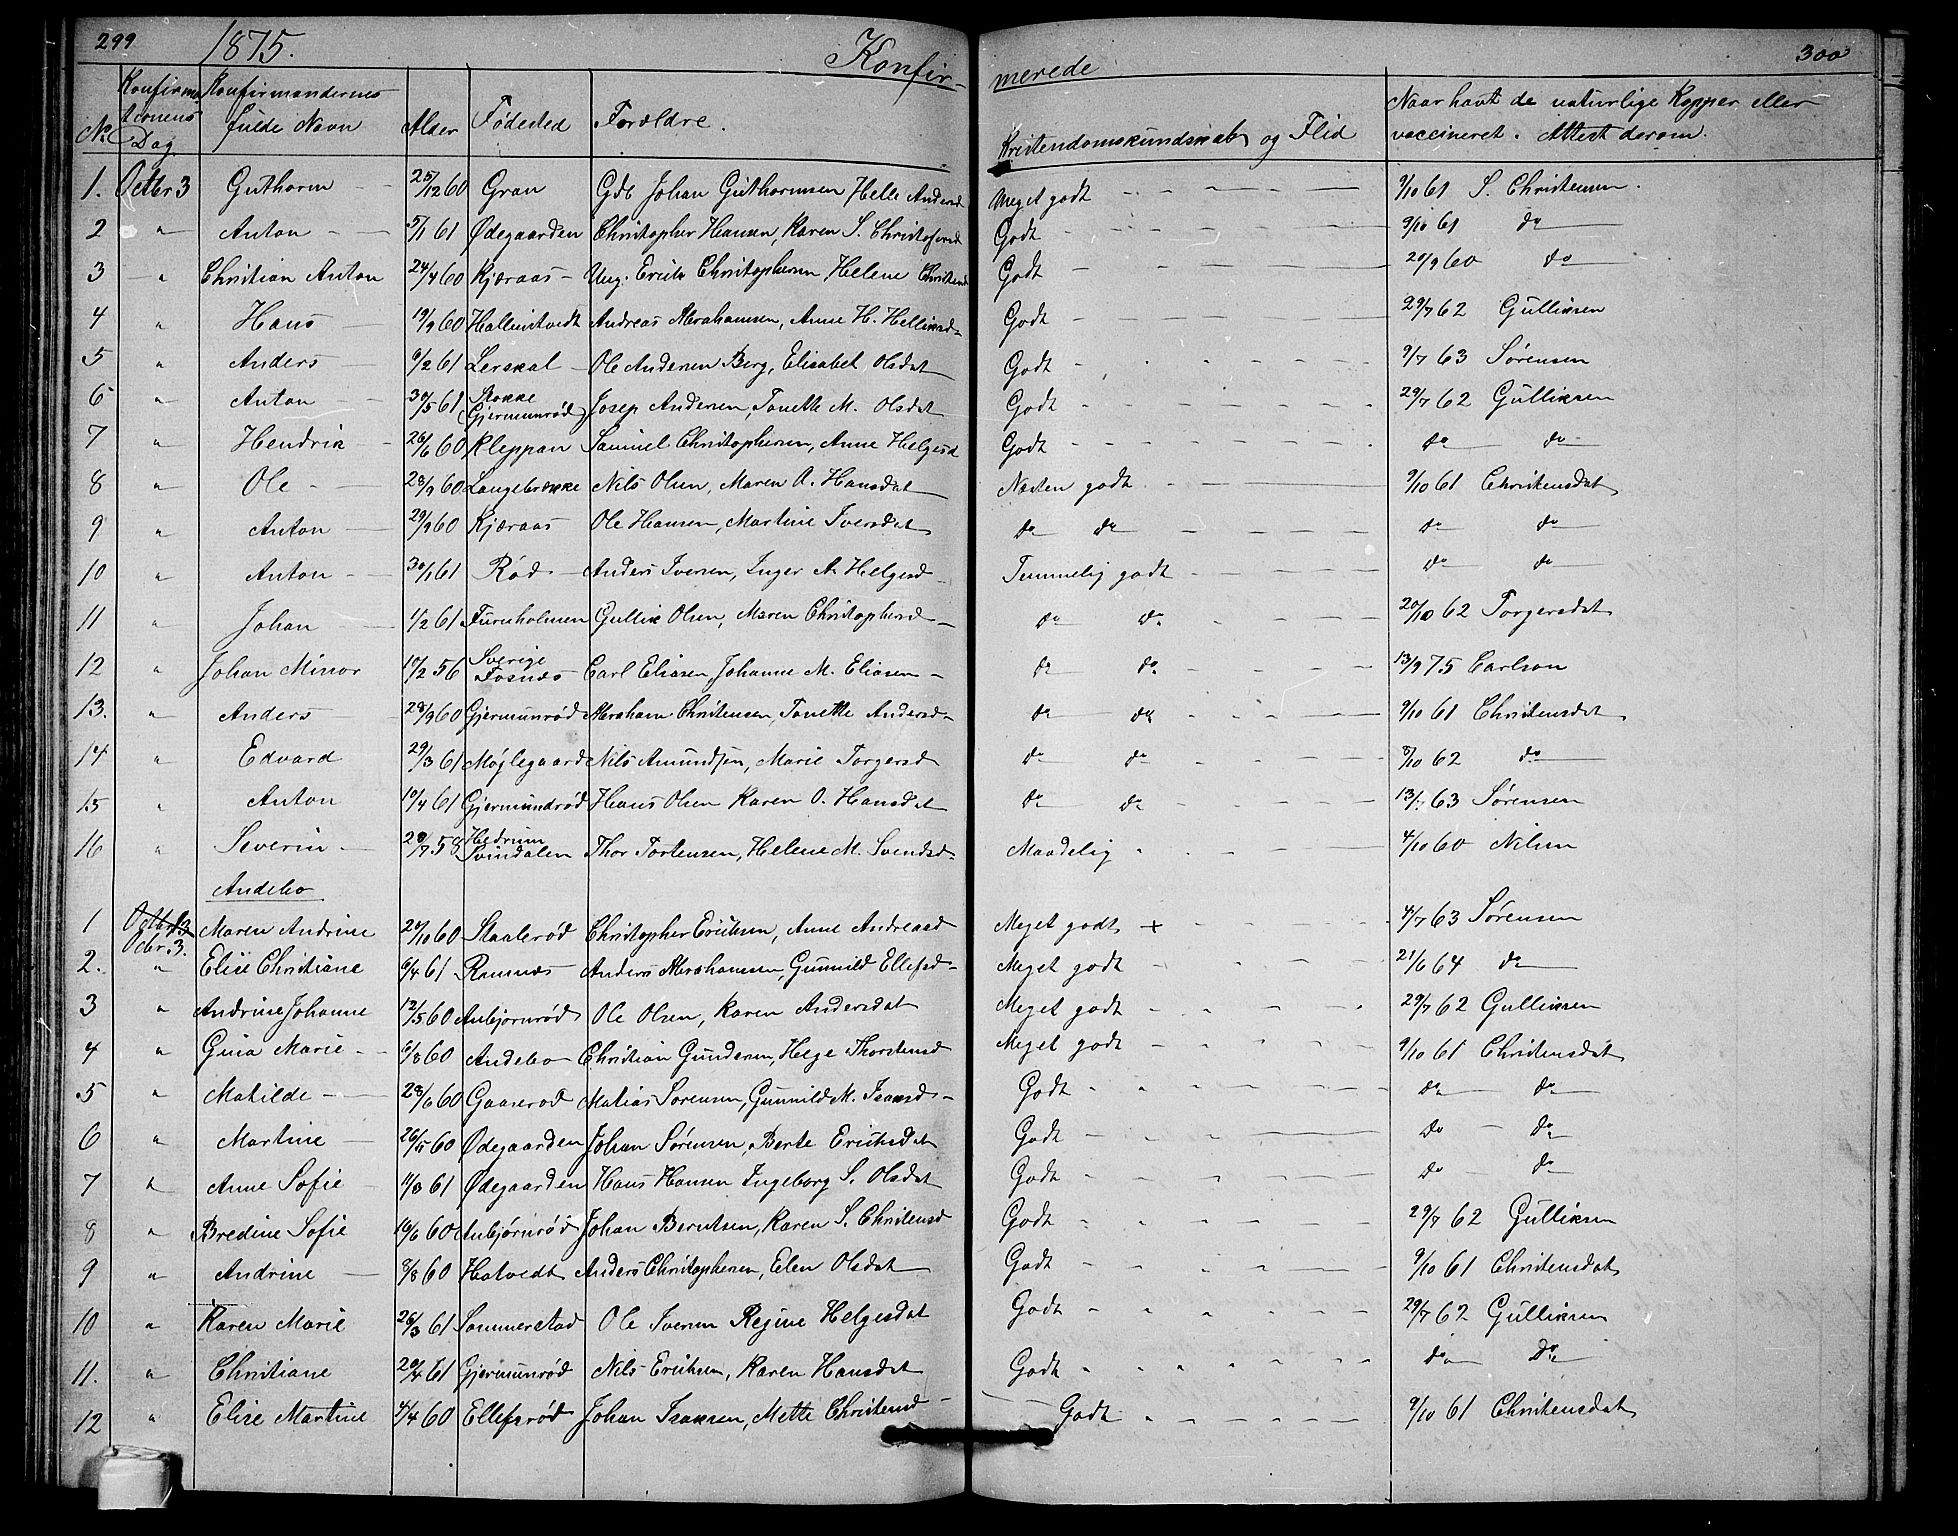 299
1875.
Konfir-
merede
300
No.
Konfirma-
tionens
Dag.
Konfirmandernes
fulde Navn
Alder
Fødested
Forældre.
Kristendomskundskab og Flid
Naar havt de naturlige Kopper eller
vaccineret. Attest derom.
1. Octbr 3 Guthorm 25/12 60 Gran Gdb Johan Guthormsen Helle Andersd Meget godt 9/10 61 S. Christensen.
2 " Anton 5/1 61 Ødegaarden Christopher Hansen, Karen S. Christofersd Godt 9/10 61 do
3 " Christian Anton 24/4 60 Kjæraas Ung. Erich Christophersen, Helene Christensd Godt 20/9 60 do
4 " Hans 19/9 60 Hallenstvedt Andreas Abrahamsen, Anne H. Helliksd Godt 29/7 62 Gulliksen
5 " Anders 6/2 61 Lerskal Ole Andersen Berg, Elisabet Olsdat Godt 9/7 63 Sørensen
6 " Anton 30/5 61 Stokke Gjermunrød Josep Andersen, Tonette M. Olsdat Godt 29/7 62 Gulliksen
7 " Hendrik 26/6 60 Kleppan Samuel Christophersen, Anne Helgesd Godt do do
8 " Ole 28/9 60 Langebrekke Nils Olsen, Maren A. Hansdat Næsten godt 9/10 61 Christensdat
9 " Anton 29/9 60 Kjæraas Ole Hansen, Martine Iversdat do do do do
10 " Anton 30/1 61 Rød Anders Iversen, Inger A. Helgesd Temmelig godt do do
11 " Johan 1/2 61 Furuholmen Gullik Olsen, Maren Christophersd do do 20/10 62 Torgersdat
12 " Johan Minor 10/2 56 Sverige Fosnæs Carl Eliasen, Johanne M. Eliasen do do 13/9 75 Carlson
13. " Anders 28/9 60 Gjermunrød Abraham Christensen, Tonette Andersd do do 9/10 61 Christensdat
14 " Edvard 29/3 61 Møjlegaard Nils Amundsen, Marie Torgersd do do 8/10 62 do
15 " Anton 10/4 61 Gjermundrød Hans Olsen Karen O. Hansdat do do 13/7 63 Sørensen
16 " Severin 28/7 58 Hedrum Svindalen Thor Torstensen, Helene M. Svendsd Maadelig 4/10 60 Nilsen
Andebo
1 Octbr 3. Maren Andrine 20/10 60 Staalerød Christopher Eriksen, Anne Andreasd Meget godt + 4/7 63 Sørensen
2. " Elise Christiane 6/4 61 Ramnæs Anders Abrahamsen, Gunnild Ellefsd Meget godt 21/6 64 do
3 " Andrine Johanne 12/5 60 Anbjørnrød Ole Olsen, Karen Andersdat Meget godt 29/7 62 Gulliksen
4 " Gina Marie 6/8 60 Andebo Christian Gundersen, Helge Thorstensd Meget godt 9/10 61 Christensdat
5 " Matilde 28/6 60 Gaaserød Matias Sørensen, Gunnild M. Isaksd Godt do do
6 " Martine 26/5 60 Ødegaarden Johan Sørensen, Berte Eriksdat Godt do do
7 " Anne Sofie 11/3 61 Ødegaarden Hans Hansen Ingeborg S. Olsdat Godt do do
8 " Bredine Sofie 16/6 60 Anbjørnrød Johan Berntsen, Karen S. Christensd Godt 29/7 62 Gulliksen
9 " Andrine 8/8 60 Hotvedt Anders Christophersen, Elen Olsdat Godt 9/10 61 Christensdat
10 " Karen Marie 26/3 61 Sommerstad Ole Iversen Regine Helgesdat Godt 29/7 62 Gulliksen
11. " Christiane 20/4 61 Gjermunrød Nils Eriksen, Karen Hansdat Godt do do
12 " Elise Martine 4/4 60 Ellefsrød Johan Isaksen, Mette Christensd Godt 9/10 61 Christensdat